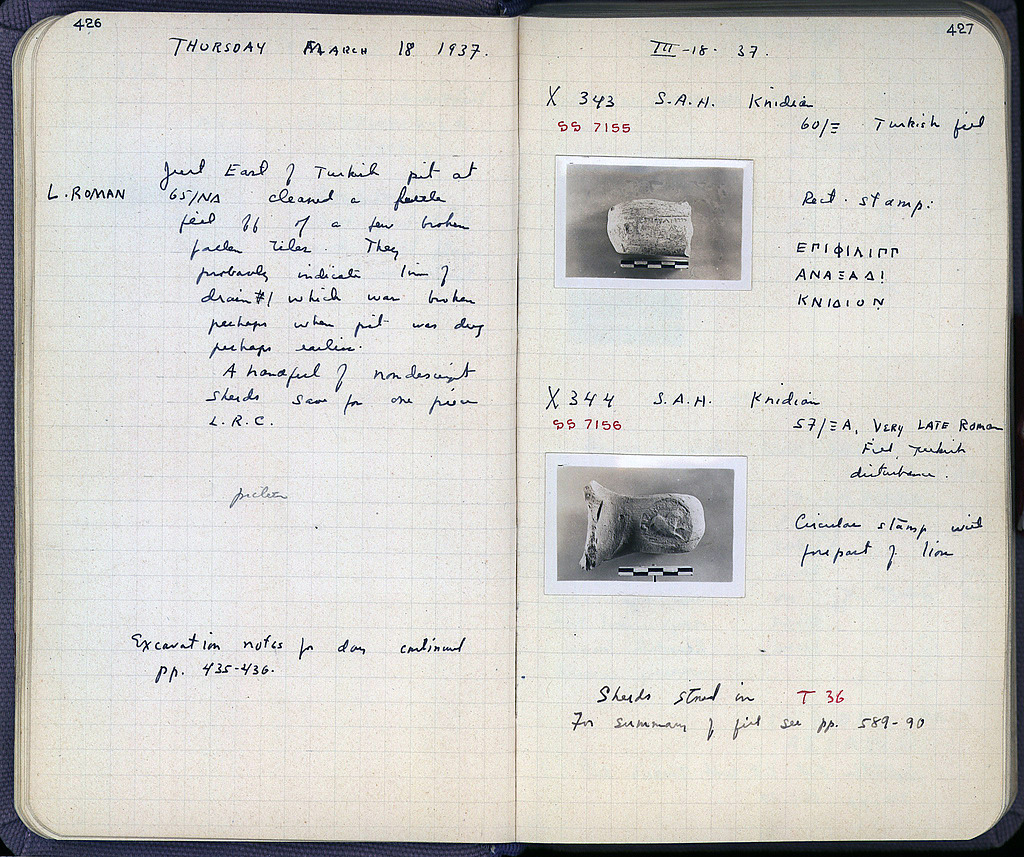 426
THURSDAY MARCH 18 1937.
Just East of Turkish pit at
L. ROMAN 65/ΝΔ cleaned a
fill of a few broken
fallen tiles. They
probably indicate line of
drain #1 which was broken
perhaps when pit was dug
perhaps earlier.
A handful of nondescript
sherds save for one piece
L.R.C.
Excavation notes for day continued
pp. 435-436.
427
III-18-37.
X 343 S.A.H. Knidian
SS 7155
60/Ξ Turkish fill
Rect. stamp:
ΕΠΙΦΙΛΙΠΠ
ΑΝΑΞΑΔΙ
ΚΝΙΔΙΟΝ
X 344 S.A.H. Knidian
SS 7156
57/ΞΑ, VERY LATE ROMAN
Fill, Turkish
disturbance.
Circular stamp with
forepart of lion
Sherds stored in T 36
For summary of fill see pp. 589-90